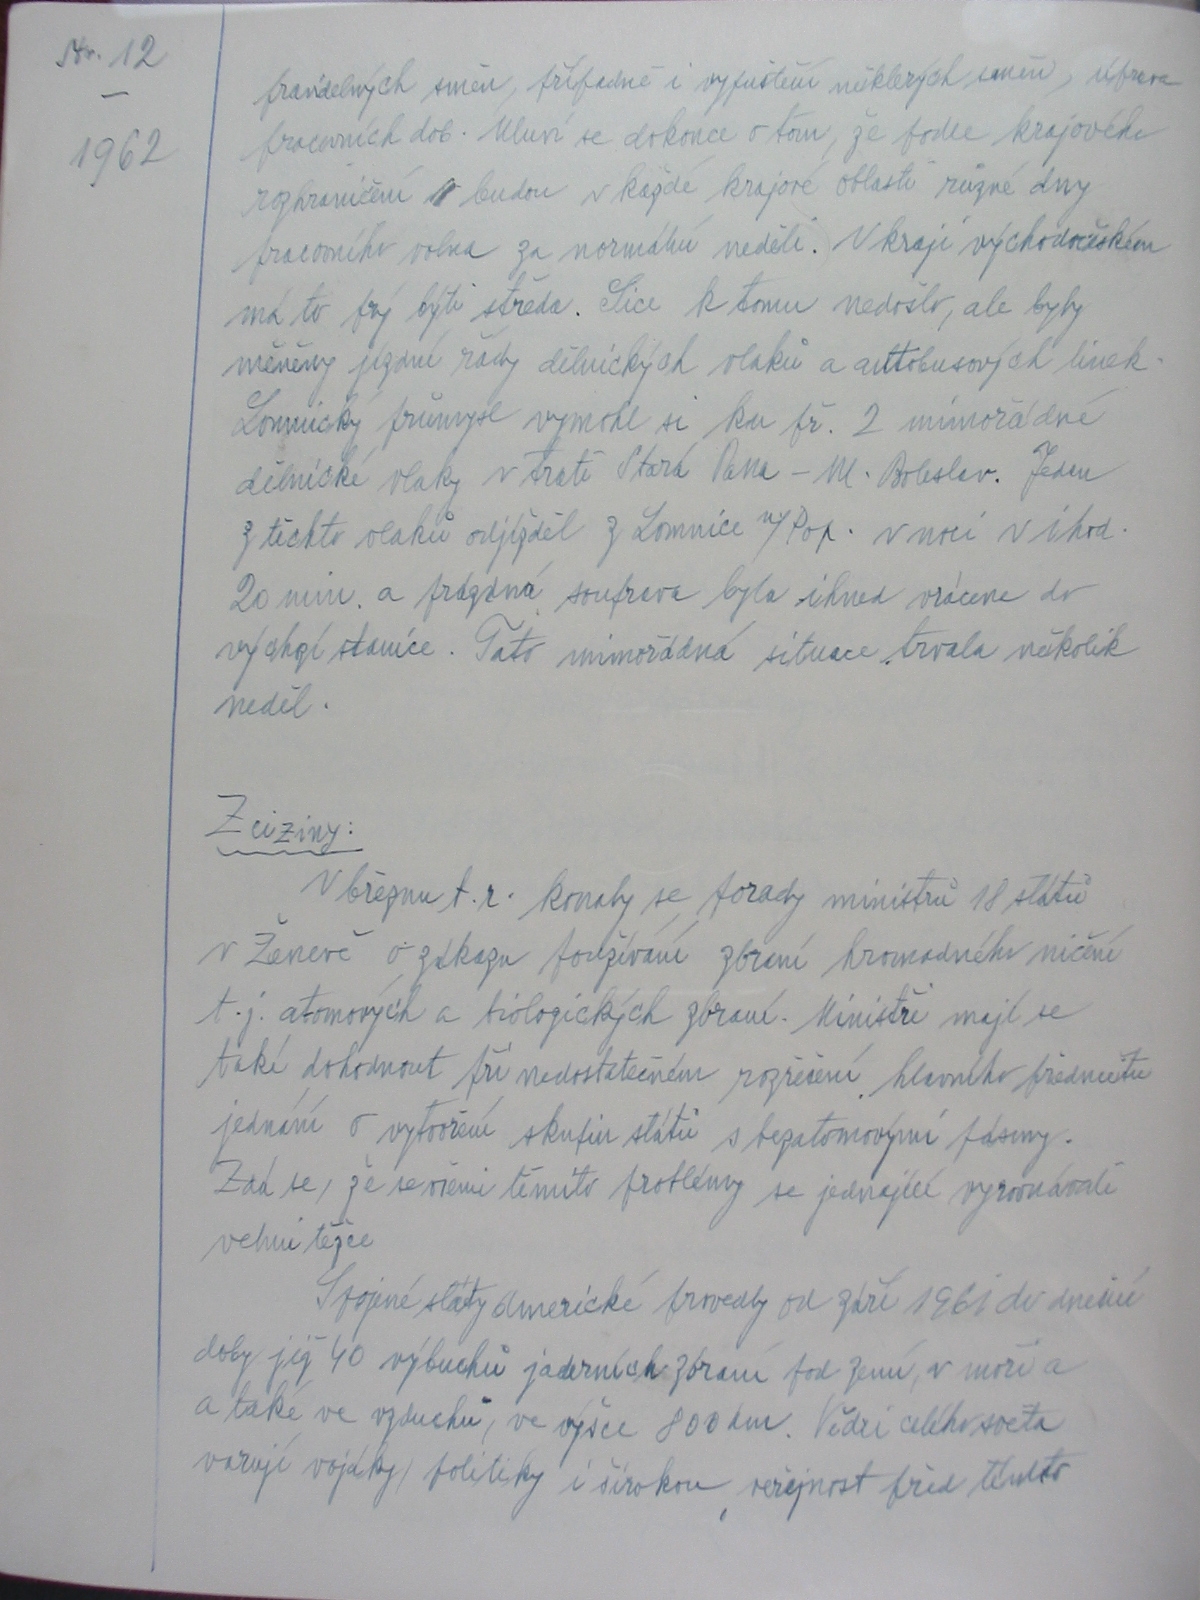 Str. 12
—
1962
pravidelných směn, případně i vypuštění některých směn, úprava
pracovních dob. Mluví se dokonce o tom, že podle krajového
rozhraničení budou v každé krajové oblasti různé dny
pracovního volna za normální neděli. V kraji východočeském
má to prý býti středa. Sice k tomu nedošlo, ale byly
měněny jízdní řády dělnických vlaků a autobusových linek.
Lomnický průmysl vymohl si ku př. 2 mimořádné
dělnické vlaky v trati Stará Paka – M. Boleslav. Jeden
z těchto vlaků odjížděl z Lomnice n/Pop. v noci v 1 hod.
20 min. a prázdná souprava byla ihned vrácena do
výchozí stanice. Tato mimořádná situace trvala několik
neděl.
Z ciziny:
V březnu t. r. konaly se porady ministrů 18 států
v Ženevě o zákazu používání zbraní hromadného ničení
t. j. atomových a biologických zbraní. Ministři mají se
také dohodnout při nedostatečném rozřešení hlavního předmětu
jednání o vytvoření skupin států s bezatomovými pásmy.
Zdá se, že se všemi těmito problémy se jednající vyrovnávali
velmi těžce
Spojené státy americké provedly od září 1961 do dnešní
doby již 40 výbuchů jaderních zbraní pod zemí, v moři a
a také ve vzduchu, ve výšce 800 km. Vědci celého světa
varují vojáky, politiky i širokou veřejnost před těmito